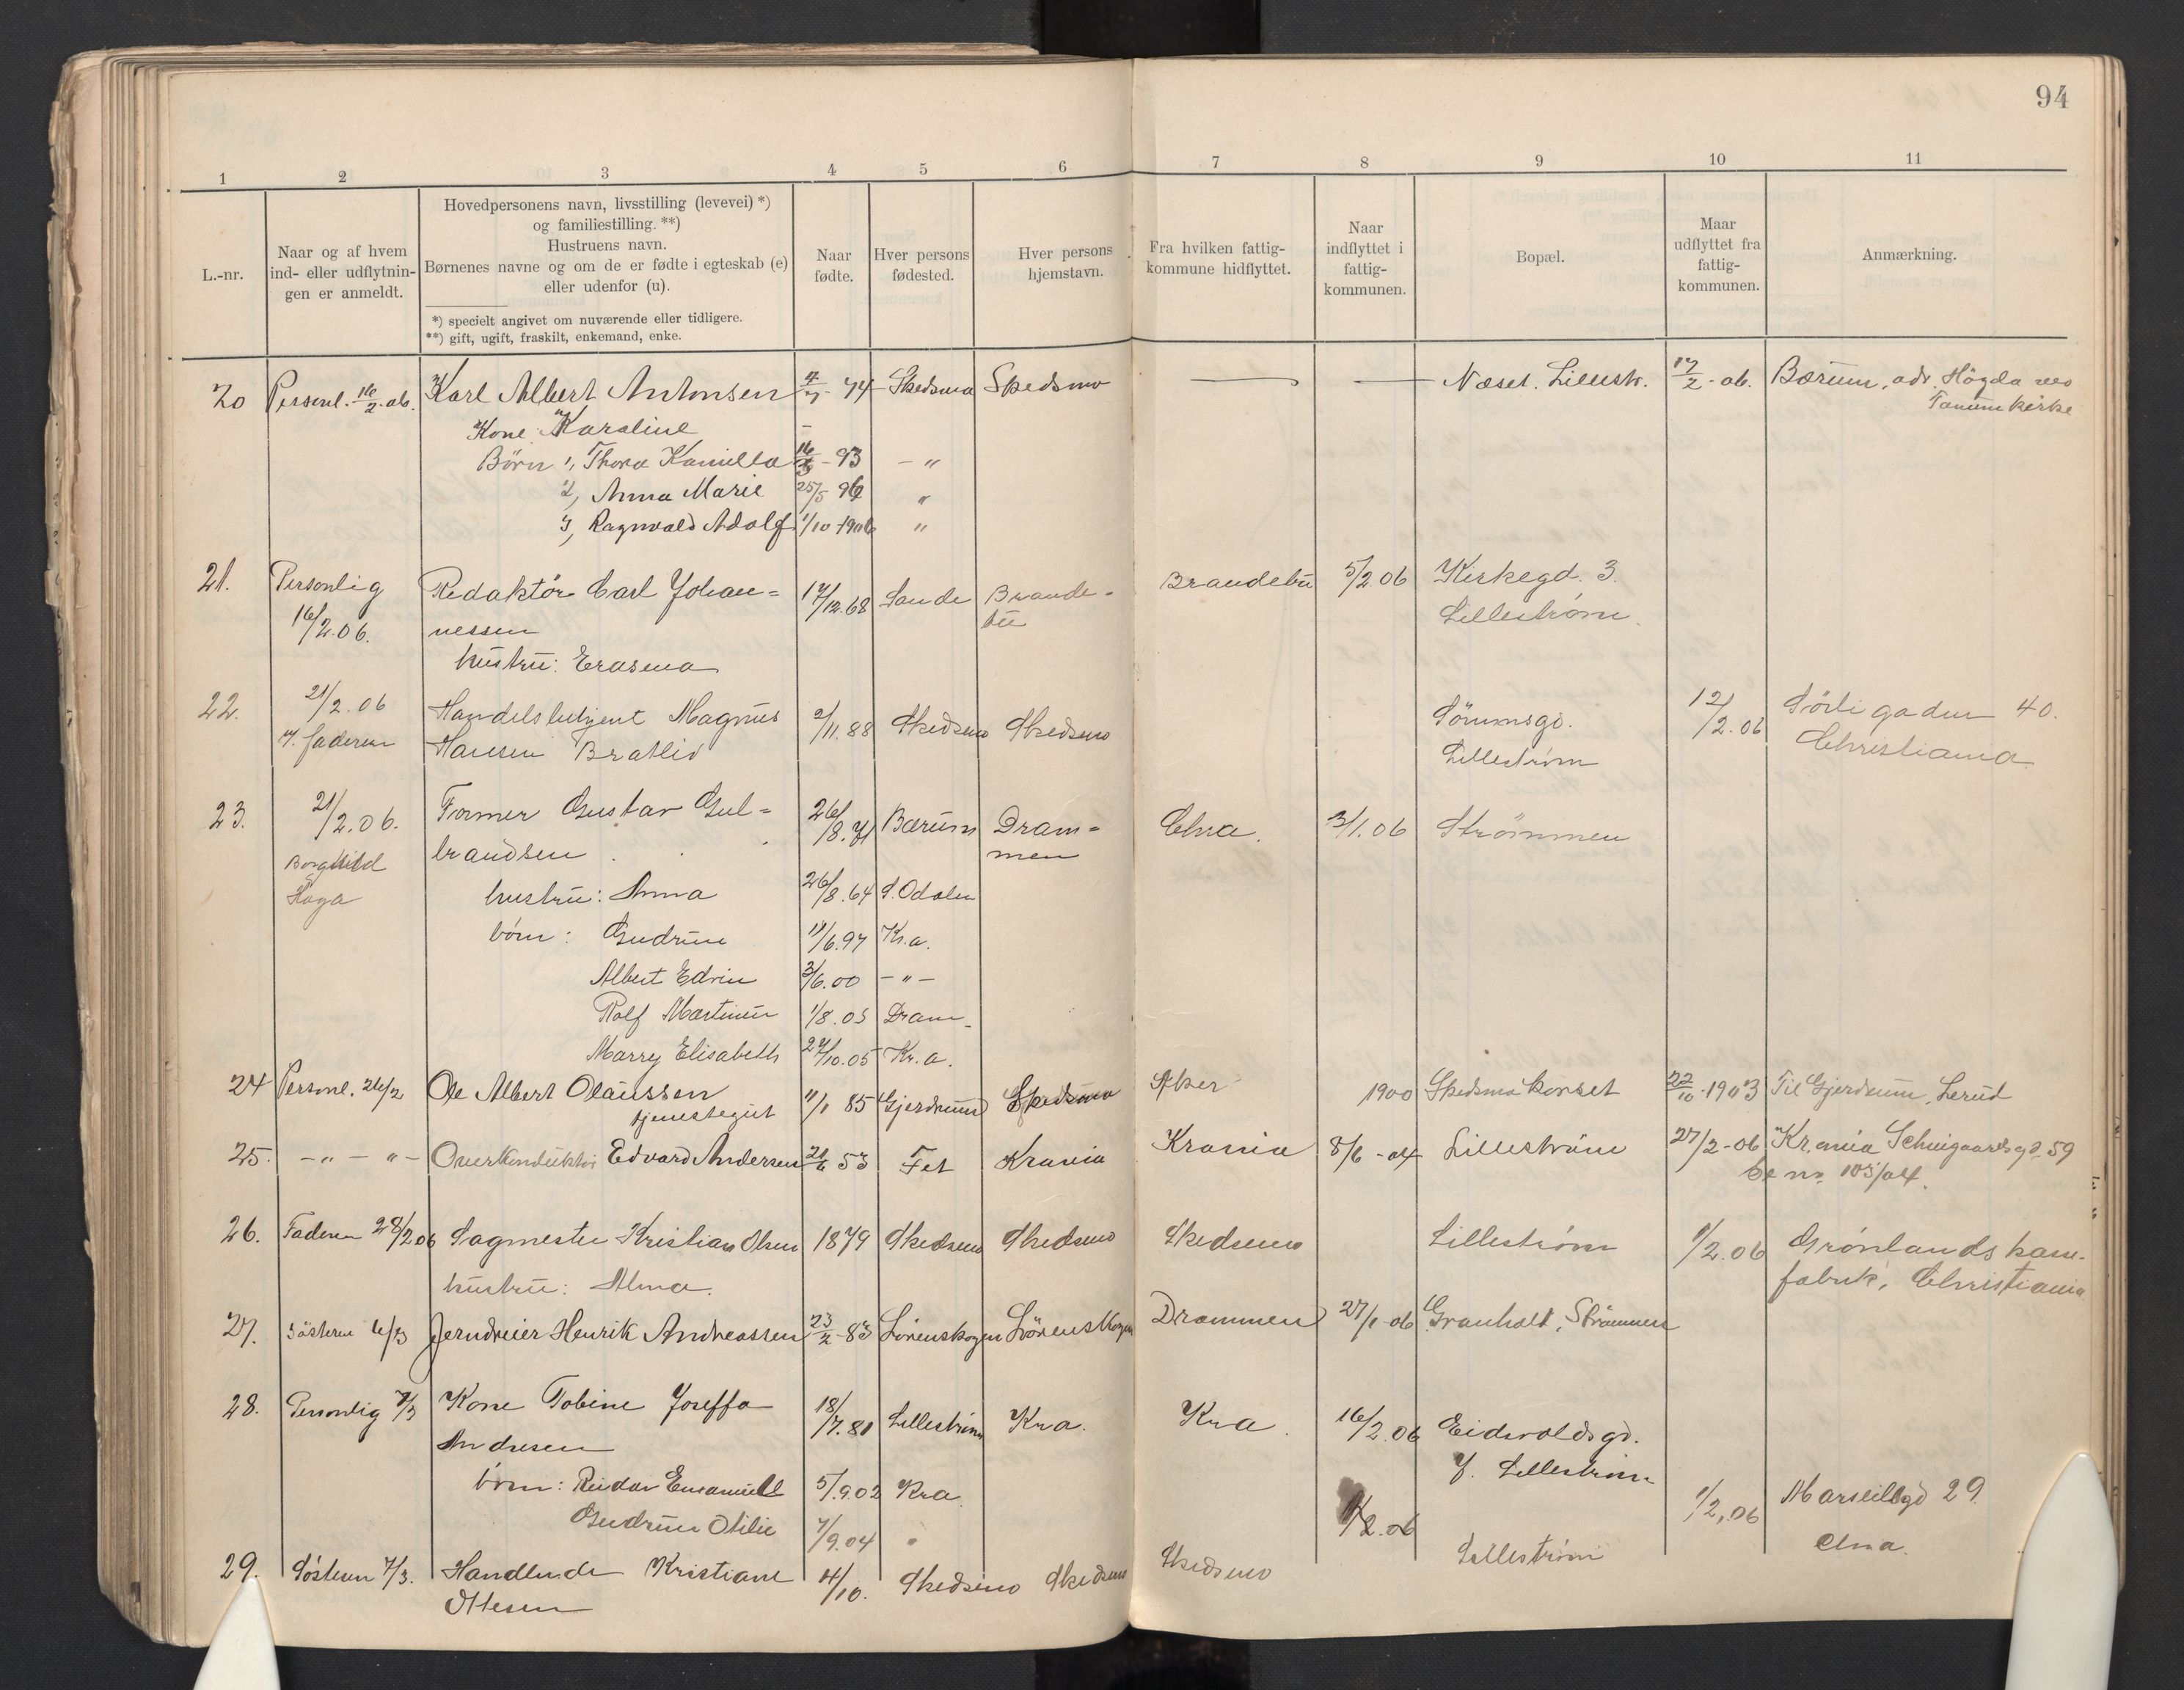 94
1 2 3 4 5 6 7 8 9 10 11
L.-nr.
Naar og af hvem
ind- eller udflytnin-
gen er anmeldt.
Hovedpersonens navn, livsstilling (levevei) *)
og familiestilling. **)
Hustruens navn.
Børnenes navne og om de er fødte i egteskab (e)
eller udenfor (u).
*) specielt angivet om nuværende eller tidligere.
**) gift, ugift, fraskilt, enkemand, enke.
Naar
fødte.
Hver persons
fødested.
Hver persons
hjemstavn.
Fra hvilken fattig-
kommune hidflyttet.
Naar
indflyttet i
fattig-
kommunen.
Bopæl.
Naar
udflyttet fra
fattig-
kommunen.
Anmærkning.
20 Personl. 16/2-06. Karl Albert Antonsen 4/7-74 Skedsmo Skedsmo — — Næset. Lillestr. 17/2-06. Bærum, adr. Högda ved
Tanum kirke
Kone Karoline –
Börn 1, Thora Kamilla 93 – "
2, Anna Marie 25/5 96 "
3, Ragnvald Adolf 1/10 1906 "
21. Personlig Redaktör Carl Johan= 17/12.68 Sande Brande- Brandebu 5/2 06 Kirkegd. 3.
16/2.06. nessen bu Lilleström.
hustru: Erasma
22. 21/2.06 Handelsbetjent Magnus 2/11.88 Skedsmo Skedsmo Sörumsgd. 12/2.06 Sörligaden 40.
v. faderen Hansen Bratlid Lilleström Christiania
23. 21/2.06. Former Gustav Gul= 26/8.71 Bærum Dram= Chra. 3/1.06 Strömmen
Borghild brandsen men
Haga hustru: Anna 26/8.64 S. Odalen
börn: Gudrun 11/6.97 Kr.a.
Albert Edvin 3/6.00 – " –
Rolf Martinius 1/8.03 Dram-
Marry Elisabeth 27/10.05 Kr.a.
24 Personl. 26/2 Ole Albert Olaussen 11/1 85 Gjerdrum Skedsmo Aker 1900 Skedsmokorset 22/10-1903 Til Gjerdrum, Lerud
tjenestegut
25. – " – " – Overkonduktör Edvard Andersen 53 Fet Krania Krania 8/6-04 Lilleström 27/2-06 Kr.ania Schwigaardsgd. 59
Se no. 103/04.
26. Faderen 28/2 06 Sagmester Kristian Olsen 1879 Skedsmo Skedsmo Skedsmo Lilleström 1/2.06 Grönlands kasse-
hustru: Alma. fabrik, Christiania
27. Søsteren 6/3 Jerndreier Henrik Andreassen 23/2-83 Lörenskogen Lörenskogen Drammen 27/1-06 Granholt, Strömmen
28. Personlig 7/3 Kone Tobine Joseffa 18/7.81 Lilleström Kra. Kra. 16/2.06 Eidsvoldsgd.
Andresen 7. Lilleström
börn: Reidar Emanuel 5/9.02 Kra.
Gudrun Otilie 7/9.04 "
29. Søsteren 7/3. Handlende Kristiane 4/10. Skedsmo Skedsmo Skedsmo 1/2.06 Lilleström 1/2.06 Marseillegd 29.
Ottesen Chra.